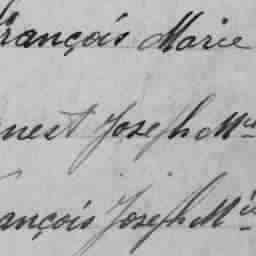 rançois Marie
nest Joseph M
ançois Joseph M